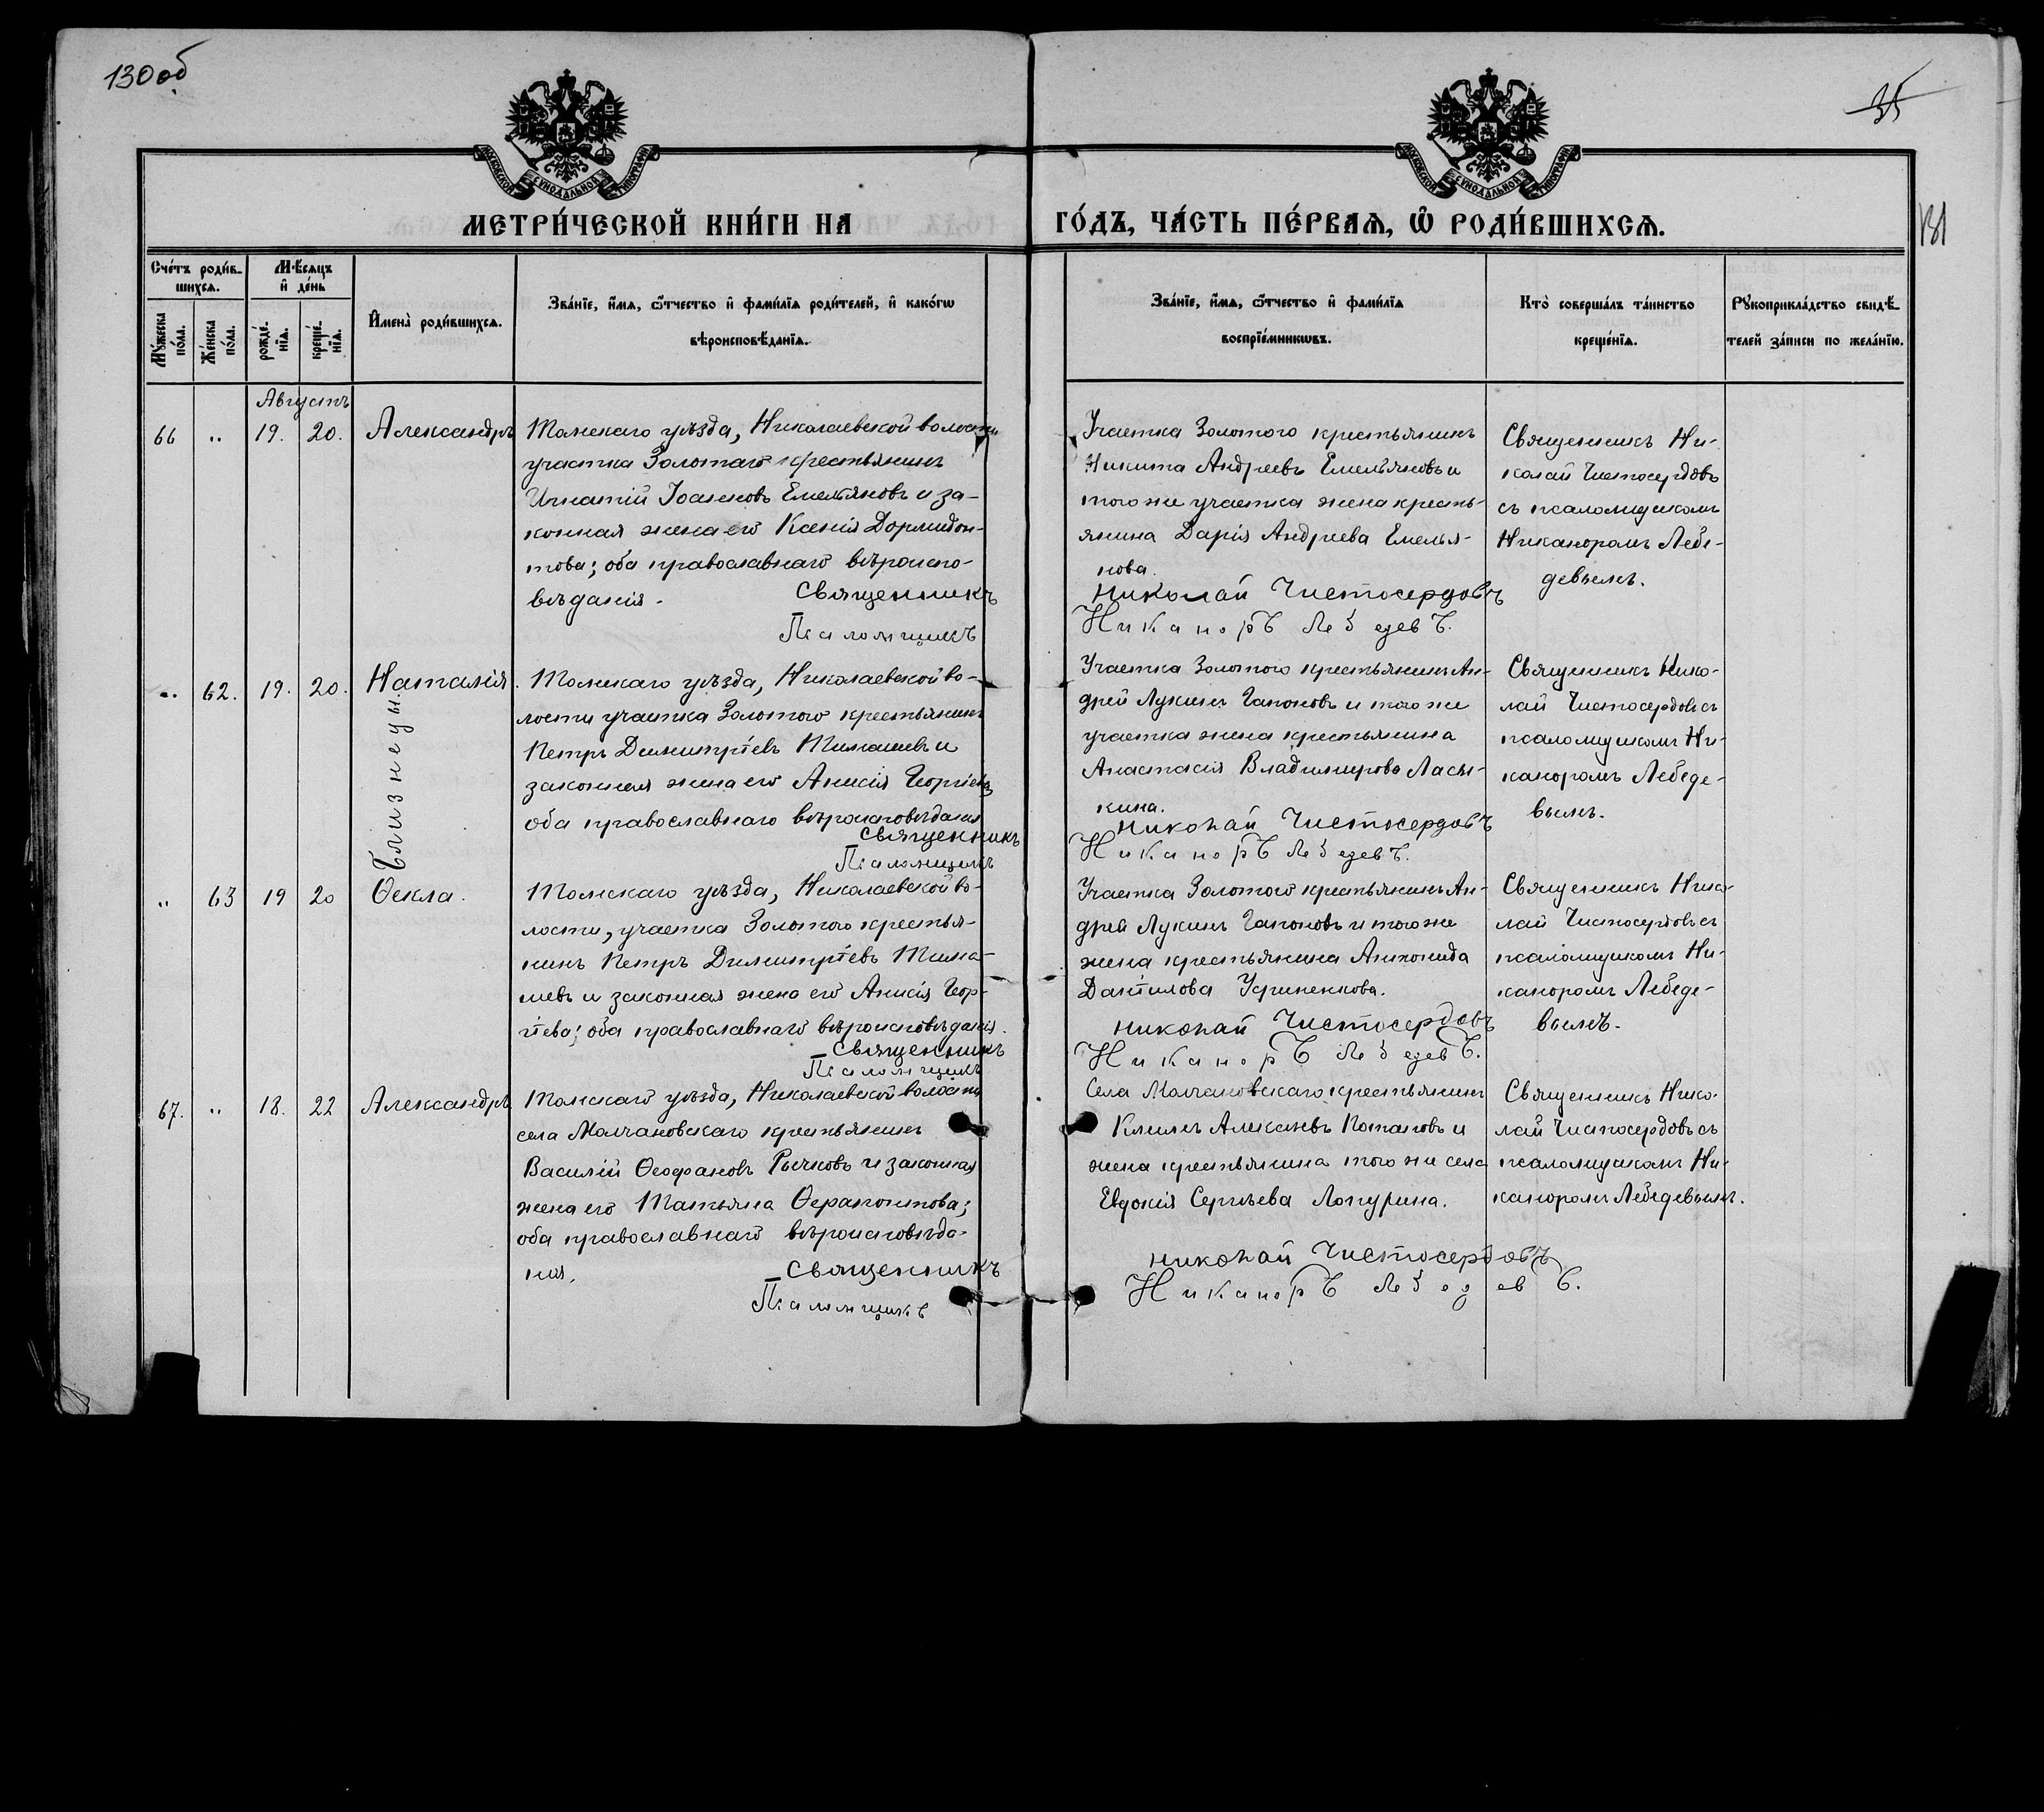 130 об.
35
131
МОСКОВСКОЙ СѴНОДАЛЬНОЙ ТИПОГРАФІИ
МОСКОВСКОЙ СѴНОДАЛЬНОЙ ТИПОГРАФІИ
МЕТРИ́ЧЕСКОЙ КНИ́ГИ НА ГО́ДЪ, ЧА́СТЬ ПЕ́РВАѦ, Ѡ҆ РОДИ́ВШИХСѦ.
Сче́тъ роди́в-
шихсѧ.
Мѣ́сѧцъ
и҆ де́нь
Мꙋ́жеска по́ла.
Же́нска по́ла.
рожде́-нїѧ.
креще́-нїѧ.
И҆мена̀ роди́вшихсѧ.
Зва́нїе, и҆́мѧ, ѻ҆́тчество и҆ фами́лїѧ роди́телей, и҆ како́гѡ
вѣроисповѣ́данїѧ.
Зва́нїе, и҆́мѧ, ѻ҆́тчество и҆ фами́лїѧ
воспрїе́мникѡвъ.
Кто̀ соверша́лъ та́инство
креще́нїѧ.
Рꙋкоприкла́дство свидѣ́-
телей за́писи по жела́нїю.
Августъ
66 " 19. 20. Александръ
Томскаго уѣзда, Николаевской волости
участка Золотаго крестьянинъ
Игнатій Іоанновъ Емельяновъ и за-
конная жена его Ксенія Дормидон-
това; оба православнаго вѣроиспо-
вѣданія.
Священникъ
Псаломщикъ
Участка Золотого крестьянинъ
Никита Андреевъ Емельяновъ и
того же участка жена кресть-
янина Дарія Андреева Емелья-
нова.
Николай Чистосердовъ
Никаноръ Лебедевъ.
Священникъ Ни-
колай Чистосердовъ
съ псаломщикомъ
Никаноромъ Лебе-
девымъ.
" 62. 19. 20. Наталія.
Близнецы
Томскаго уѣзда, Николаевской во-
лости участка Золотого крестьянинъ
Петръ Димитріевъ Тимашевъ и
законная жена его Анисія Георгіева
оба православнаго вѣроисповѣданія
Священникъ
Псаломщикъ
Участка Золотого крестьянинъ Ан-
дрей Лукинъ Гапоновъ и того же
участка жена крестьянина
Анастасія Владимирова Ласы-
кина.
Николай Чистосердовъ
Никаноръ Лебедевъ.
Священникъ Нико-
лай Чистосердовъ съ
псаломщикомъ Ни-
каноромъ Лебеде-
вымъ.
" 63 19 20 Ѳекла.
Томскаго уѣзда, Николаевской во-
лости, участка Золотого крестья-
нинъ Петръ Димитріевъ Тима-
шевъ и законная жена его Анисія Геор-
гіева; оба православнаго вѣроисповѣданія.
Священникъ
Псаломщикъ
Участка Золотого крестьянинъ Ан-
дрей Лукинъ Гапоновъ и того же
жена крестьянина
Даніилова
Николай Чистосердовъ
Никаноръ Лебедевъ.
Священникъ Нико-
лай Чистосердовъ съ
псаломщикомъ Ни-
каноромъ Лебеде-
вымъ.
67. " 18. 22 Александръ
Томскаго уѣзда, Николаевской волости
села Молчановскаго крестьянинъ
Василій Ѳеофановъ Рычковъ и законная
жена его Татьяна Ѳерапонтова;
оба православнаго вѣроисповѣда-
нія.
Священникъ
Псаломщикъ
Села Молчановскаго крестьянинъ
Климъ Алексѣевъ Потаповъ и
жена крестьянина того же села
Евдокія Сергѣева Лопурина.
Николай Чистосердовъ
Никаноръ Лебедевъ.
Священникъ Нико-
лай Чистосердовъ съ
псаломщикомъ Ни-
каноромъ Лебедевымъ.